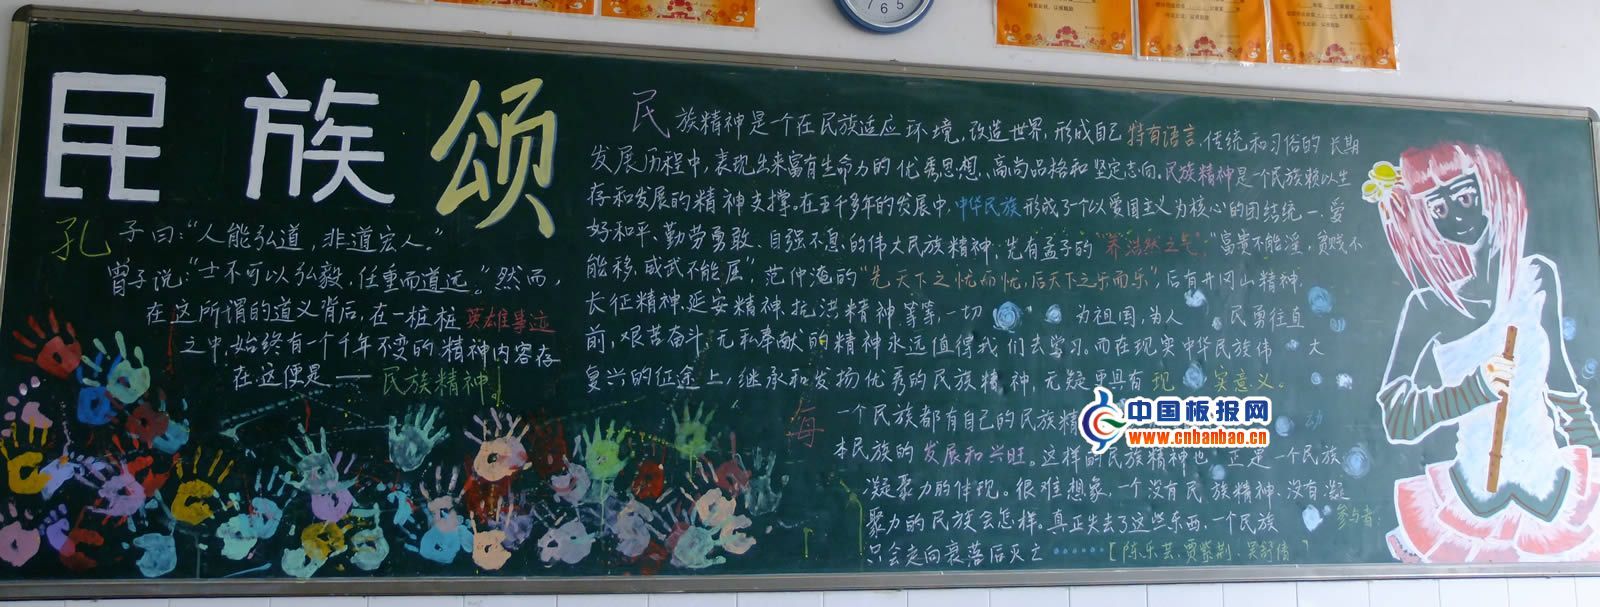 民族颂
孔子曰：“人能弘道，非道宏人。”
曾子说：“士不可以弘毅，任重而道远。”然而，
在这所谓的道义背后，在一桩桩英雄事迹
之中，始终有一个千年不变的精神内容存
在这便是——民族精神
民族精神是一个在民族适应环境，改造世界，形成自己特有语言、传统和习俗的长期
发展历程中，表现出来富有生命力的优秀思想、高尚品格和坚定志向。民族精神是一个民族赖以生
存和发展的精神支撑。在五千多年的发展中，中华民族形成了个以爱国主义为核心的团结统一、爱
好和平、勤劳勇敢、自强不息的伟大民族精神，先有孟子的“养浩然之气，”“富贵不能淫，贫贱不
能移，威武不能屈”，范仲淹的“先天下之忧而忧，后天下之乐而乐”，后有井冈山精神，
长征精神，延安精神，抗洪精神等等，一切 为祖国，为人 民勇往直
前，艰苦奋斗，无私奉献的精神永远值得我们去学习。而在现实中华民族伟 大
复兴的征途上，继承和发扬优秀的民族精神，无疑更具有现 实意义。
每一个民族都有自己的民族精 动
本民族的发展和兴旺。这样的民族精神也 正是一个民族
凝聚力的体现。很难想象，一个没有民族精神、没有凝
聚力的民族会怎样。真正失去了这些东西，一个民族
只会走向衰落后灭亡……
参与者：
[陈乐芸、贾紫荆、吴舒倩
中国板报网
www.cnbanbao.cn
7 6 5